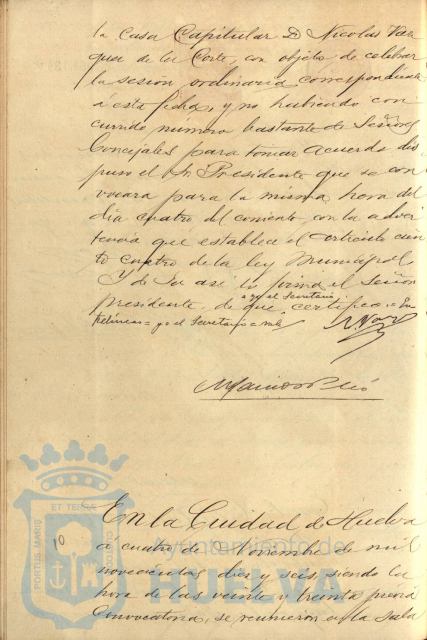 la Casa Capitular D. Nicolas Vaz
quez de la Corte, con objeto de celebrar
la sesion ordinaria correspondiente
á esta fecha, y no habiendo con
currido número bastante de Señores
Concejales para tomar acuerdo dis
puso el Sr. Presidente que se con
vocara para la misma hora del
dia cuatro del corriente, con la adver
tencia que establece el artículo cien
to cuatro de la ley Municipal.
Y de ser asi lo firma el Señor
a yo el Secretario
presidente, de que certifico = En
trelineas = yo el Secretario = vale
En la Ciudad de Huelva
á cuatro de Noviembre de mil
novecientos diez y seis, siendo la
hora de las veinte y treinta previa
convocatoria, se reunieron en la Sala
10
PORTUS MARIS ET TERRÆ CUSTODIA
Ayuntamiento de
HUELVA